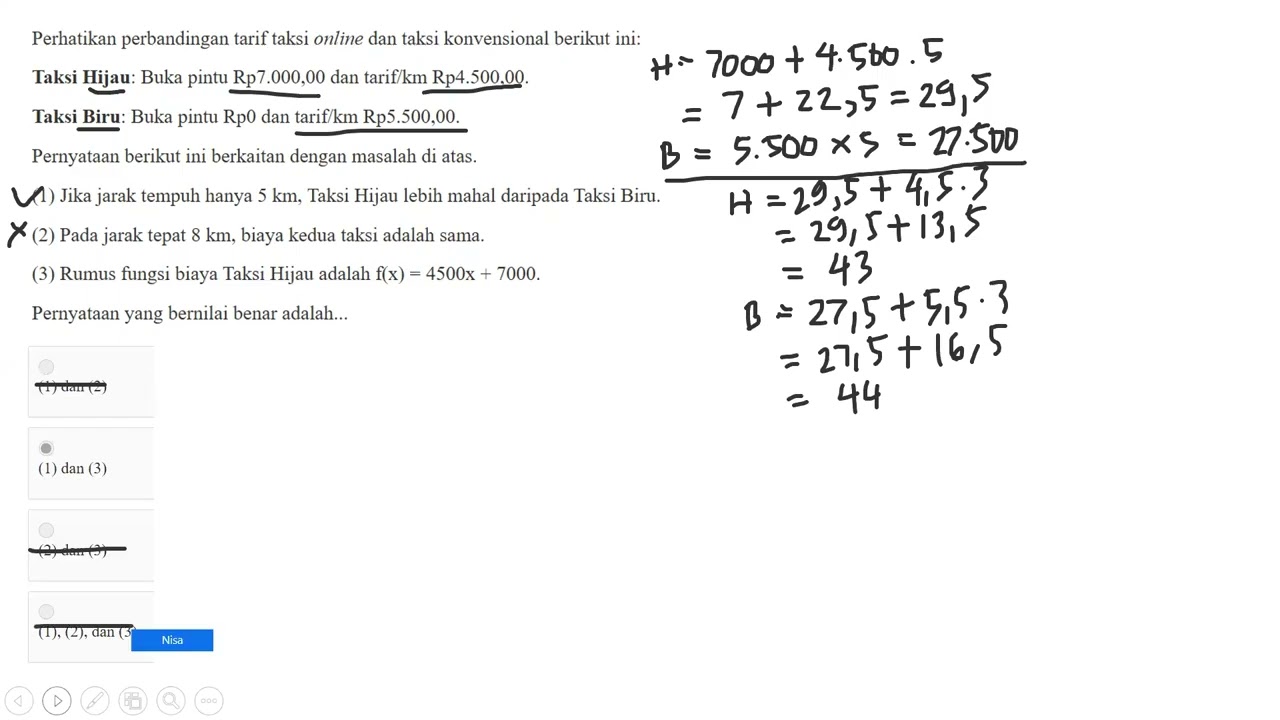 Perhatikan perbandingan tarif taksi online dan taksi konvensional berikut ini:
Taksi Hijau: Buka pintu Rp7.000,00 dan tarif/km Rp4.500,00.
Taksi Biru: Buka pintu Rp0 dan tarif/km Rp5.500,00.
Pernyataan berikut ini berkaitan dengan masalah di atas.
(1) Jika jarak tempuh hanya 5 km, Taksi Hijau lebih mahal daripada Taksi Biru.
(2) Pada jarak tepat 8 km, biaya kedua taksi adalah sama.
(3) Rumus fungsi biaya Taksi Hijau adalah f(x) = 4500x + 7000.
Pernyataan yang bernilai benar adalah...
(1) dan (2)
(1) dan (3)
(2) dan (3)
(1), (2), dan (3
Nisa
H = 7000 + 4.500 . 5
= 7 + 22,5 = 29,5
B = 5.500 x 5 = 27.500
H = 29,5 + 4,5 . 3
= 29,5 + 13,5
= 43
B = 27,5 + 5,5 . 3
= 27,5 + 16,5
= 44